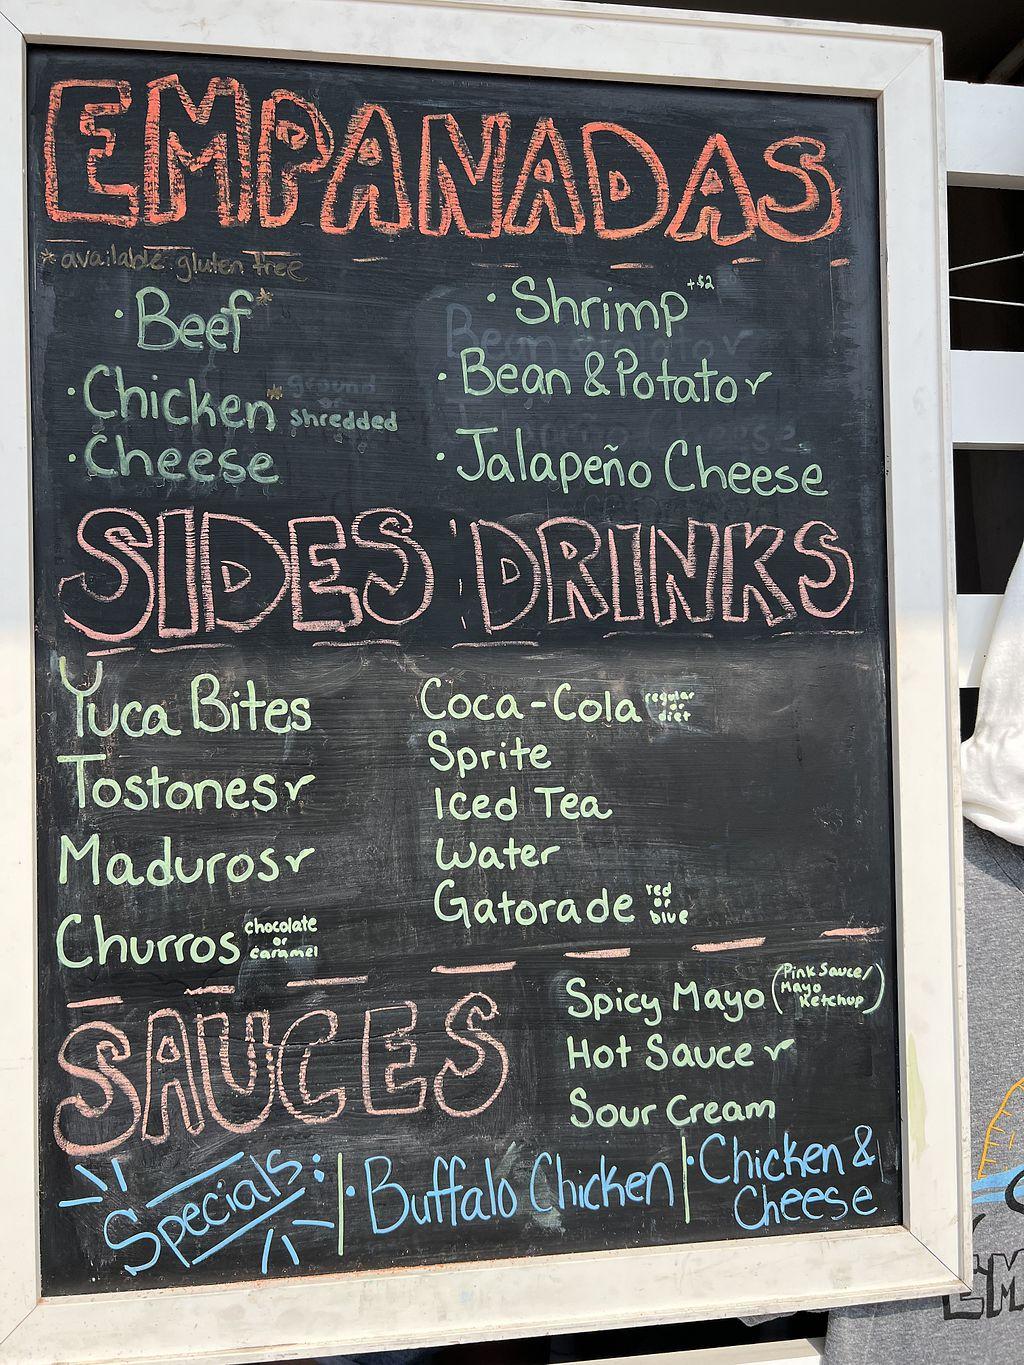 EMPANADAS
*available gluten free
· Beef*
· Chicken* ground
or
shredded
· Cheese
· Shrimp +$2
· Bean & Potato v
· Jalapeño Cheese
SIDES
Yuca Bites
Tostones v
Maduros v
Churros chocolate
or
caramel
DRINKS
Coca-Cola regular
or
diet
Sprite
Iced Tea
Water
Gatorade red
or
blue
SAUCES
Spicy Mayo (Pink Sauce/
Mayo
Ketchup)
Hot Sauce v
Sour Cream
Specials: · Buffalo Chicken · Chicken &
Cheese
EM